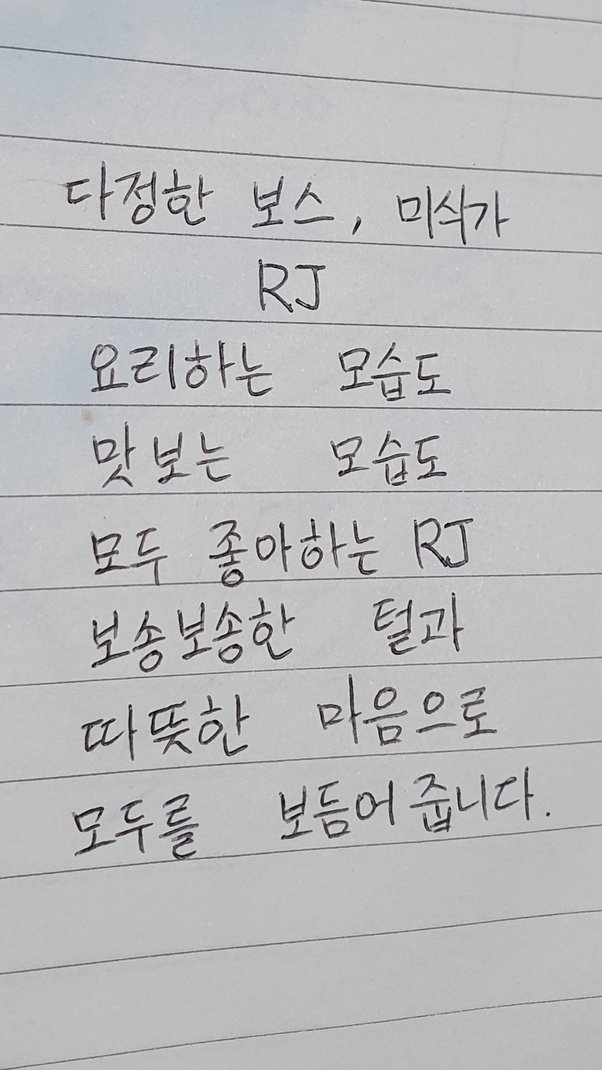 다정한 보스, 미식가
RJ
요리하는 모습도
맛보는 모습도
모두 좋아하는 RJ
보송보송한 털과
따뜻한 마음으로
모두를 보듬어 줍니다.